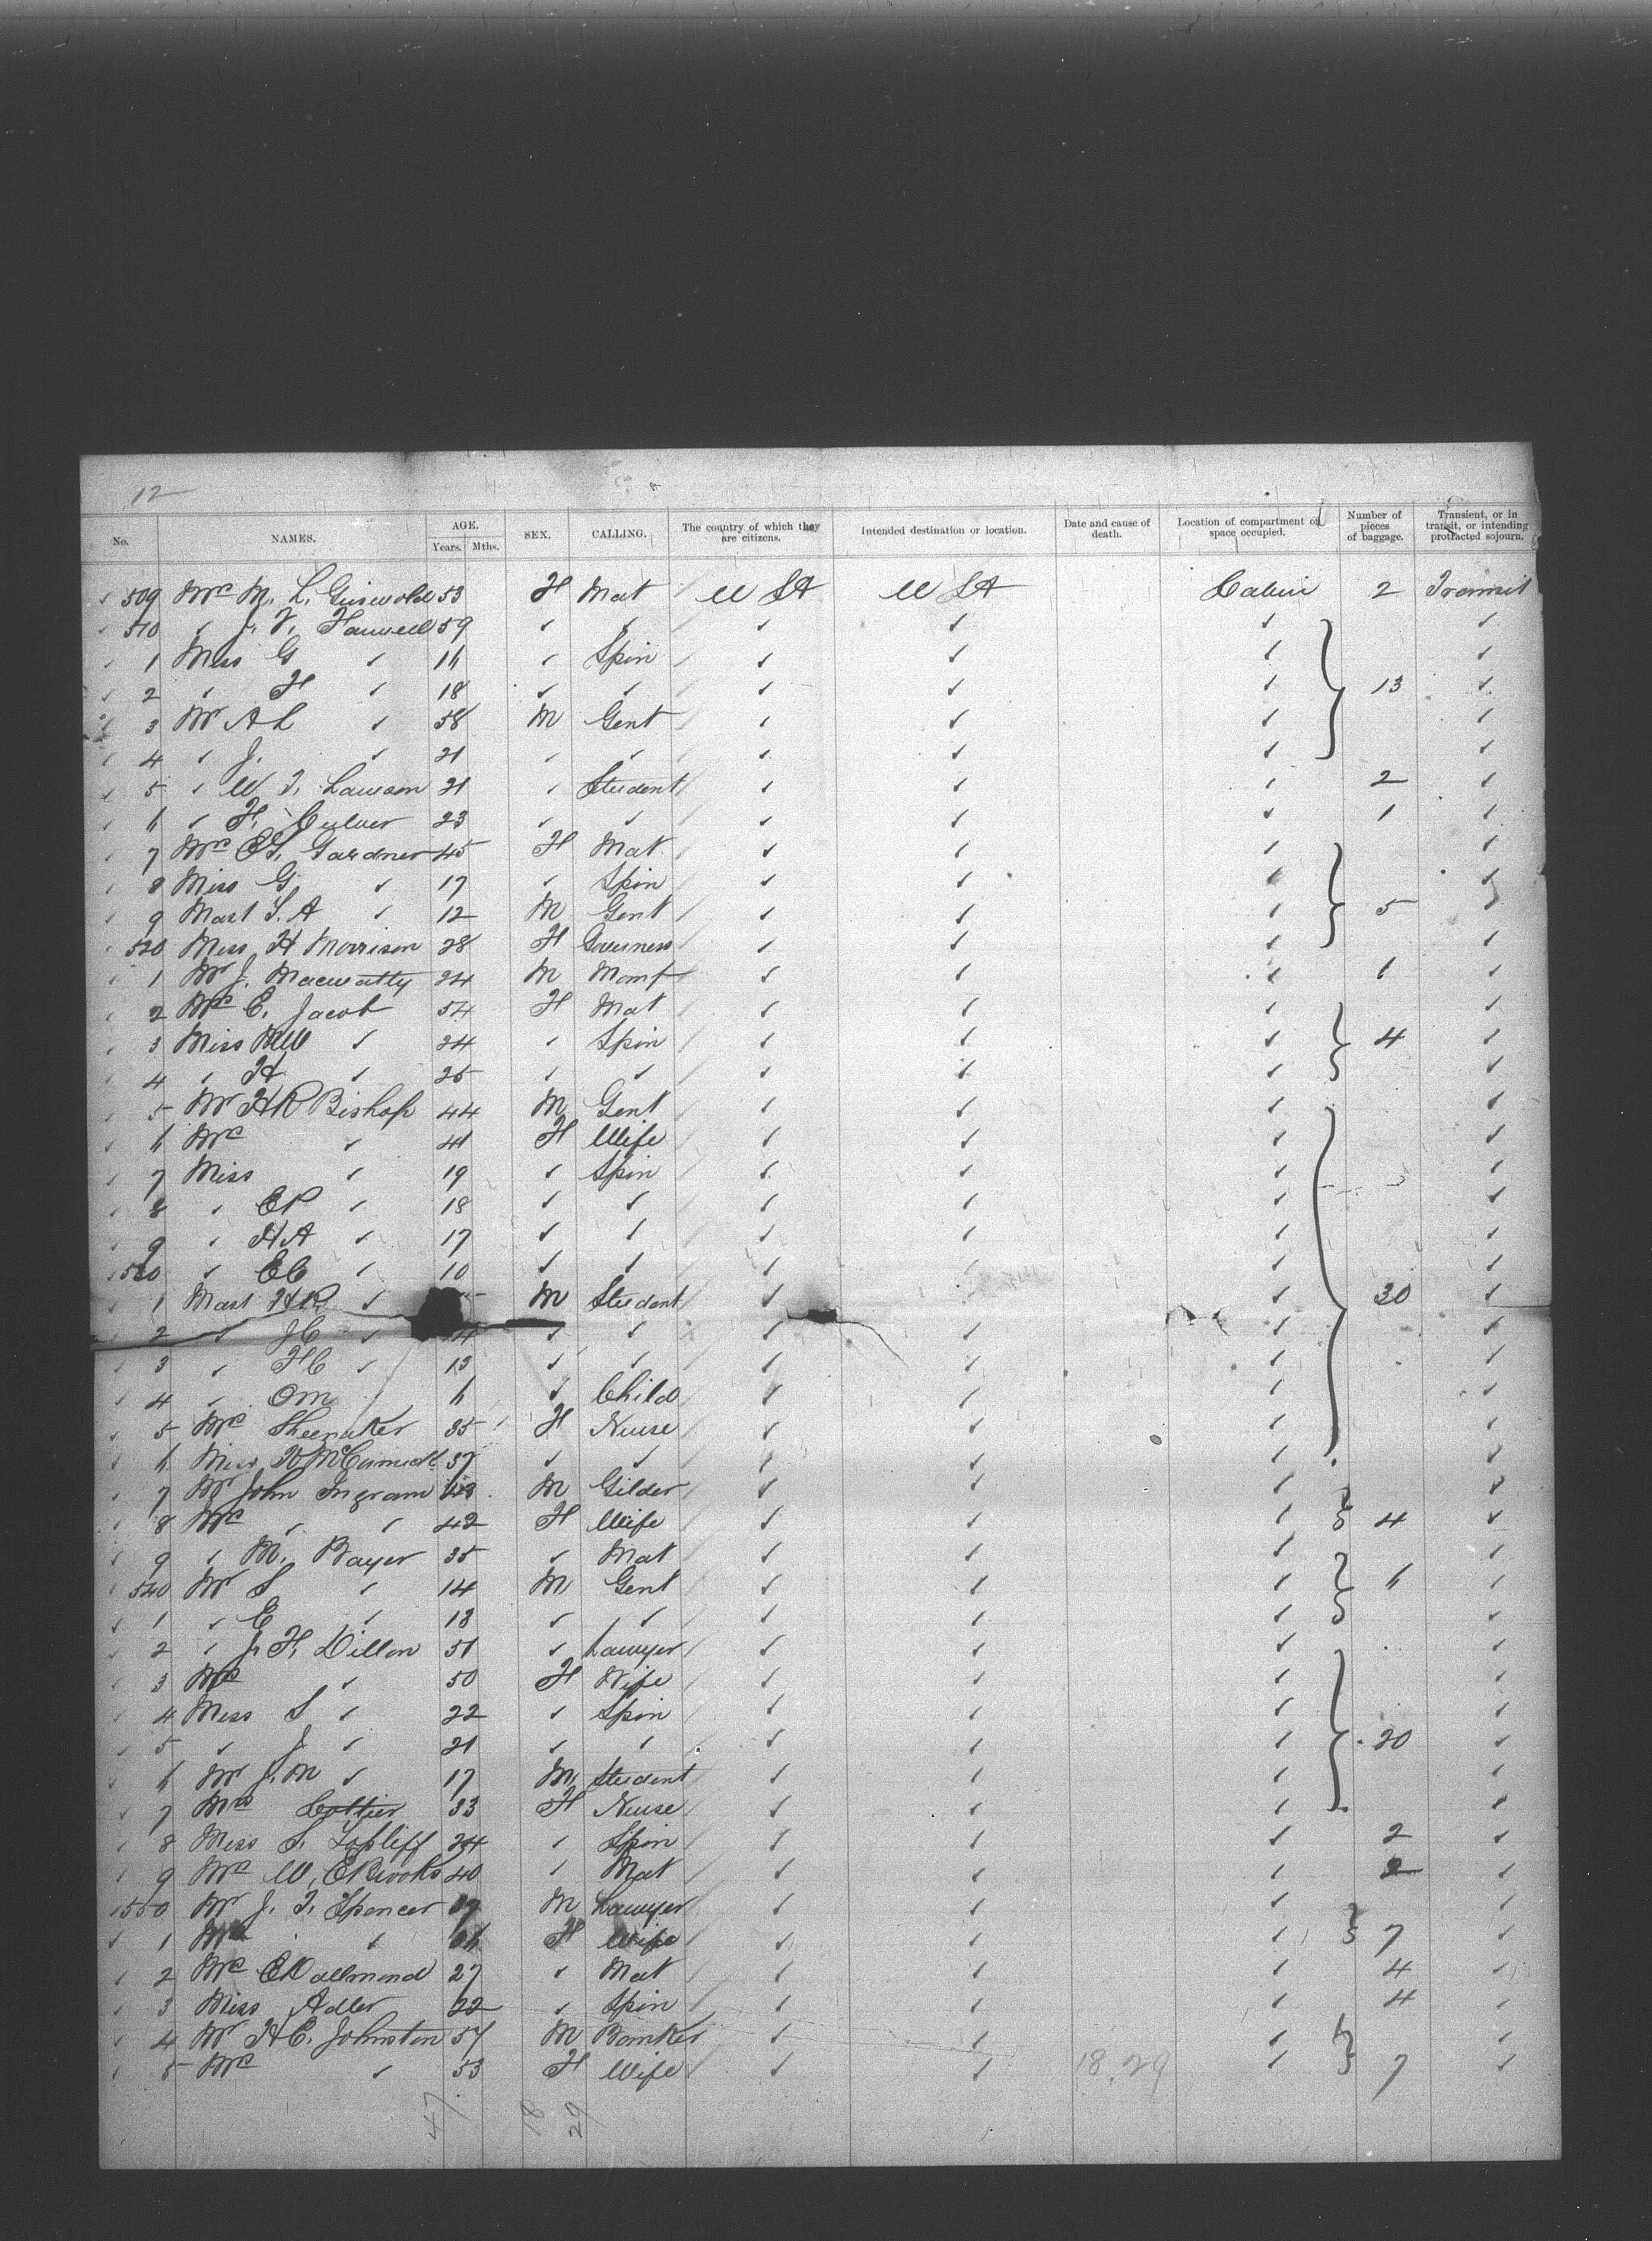 12
No. NAMES. AGE. Years. Mths. SEX. CALLING. The country of which they are citizens. Intended destination or location. Date and cause of death. Location of compartment or space occupied. Number of pieces of baggage. Transient, or in transit, or intending protracted sojourn.
509 Mrs M. L. Griswold 53 F Mat U St U St Cabin 2 Transit
510 " J. V. Farwell 59 " " " " " "
1 Miss G " 16 " Spin " " " "
2 " F " 18 " " " " " 13 "
3 Mr A L " 58 M Gent " " " "
4 " J. " 21 " " " " " "
5 " W. T. Lawson 21 " Student " " " 2 "
6 " F. Culver 23 " " " " " 1 "
7 Mrs E G. Gardner 45 F Mat " " " "
8 Miss G. " 17 " Spin " " " "
9 Mast S. A " 12 M Gent " " " 5 "
520 Miss H Morrison 28 F Governess " " " "
1 Mr J. 24 M Manf " " " 1 "
2 Mrs E. Jacob 54 F Mat " " " "
3 Miss " 24 " Spin " " " 4 "
4 " H " 25 " " " " " "
5 Mr H R Bishop 44 M Gent " " " "
6 Mrs " 41 F Wife " " " "
7 Miss " 19 " Spin " " " "
8 " " 18 " " " " " "
9 " H A " 17 " " " " " "
530 " E C " 10 " " " " " "
1 Mast H R " M Student " " 30 "
2 " J C " 14 " " " " " "
3 " F C " 13 " " " " " "
4 " O m 6 " Child " " " "
5 Mrs 35 F Nurse " " " "
6 Miss 37 " " " " " "
7 Mr John Ingram 43 M Gilder " " " "
8 Mrs " " 42 F Wife " " " 4 "
9 " M. Bayer 35 " Mat " " " "
540 Mr S " 14 M Gent " " " 6 "
1 " E " 13 " " " " " "
2 " J. F. Dillon 51 " Lawyer " " " "
3 Mrs " 50 F Wife " " " "
4 Miss S " 22 " Spin " " " "
5 " J " 21 " " " " " 20 "
6 Mr J. M " 17 M Student " " " "
7 Mrs Cottier 33 F Nurse " " " "
8 Miss S. Topliff 24 " Spin " " " 2 "
9 Mrs W. E Brooks 40 " Mat " " " 2 "
550 Mr J. T. Spencer M Lawyer " " " "
1 Mrs " F Wife " " " 7 "
2 Mrs 27 " Mat " " " 4 "
3 Miss Adler 22 " Spin " " " 4 "
4 Mr H C. Johnston 57 M Banker " " " "
5 Mrs " 53 F Wife " " 18.29 " 7 "
47 18 29